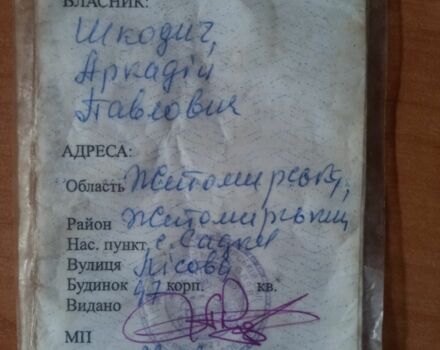 ВЛАСНИК:
Шкодич,
Аркадій
Павлович
АДРЕСА:
Область Житомирська,
Район Житомирський
Нас. пункт с. Садки
Вулиця Лісова
Будинок 47 корп. кв.
Видано
МП